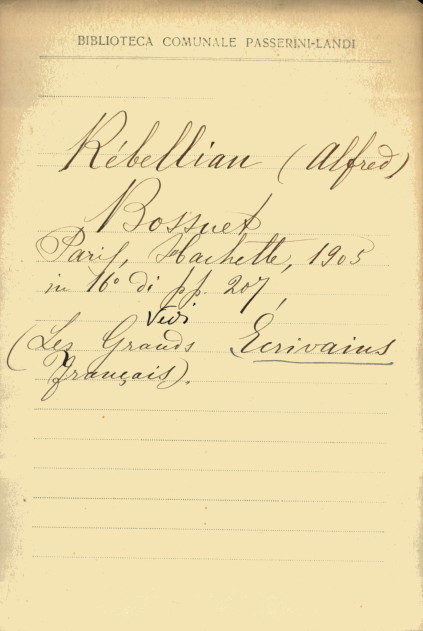 BIBLIOTECA COMUNALE PASSERINI-LANDI
Rébellian (Alfred)
Bossuet
Paris, Hachette, 1905
in 16° di pp. 207,
Vedi
(Les Grands Ecrivains
français).